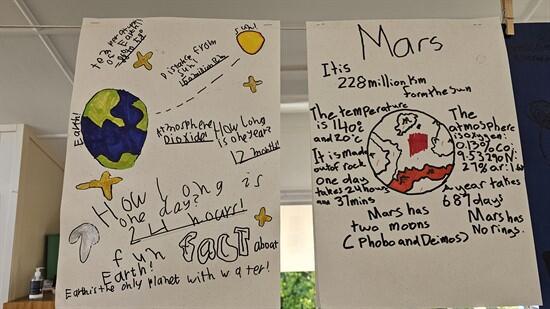 of Earth!
Distance from
Sun!
sun!
Earth!
Atmosphere
Dioxide!
How long
is one year?
12 months!
How long is
one day?
24 hours!
fun
fact about
Earth!
Earth is the only planet with water!
Mars
It is
228 million km
form the sun
The temperature
is 140c
and 20c
It is made
out of rock
one day
takes 24 hours
and 37 mins
The
atmosphere
is oxygen:
A year takes
687 days
Mars has
two moons
(Phobo and Deimos)
Mars has
No rings.